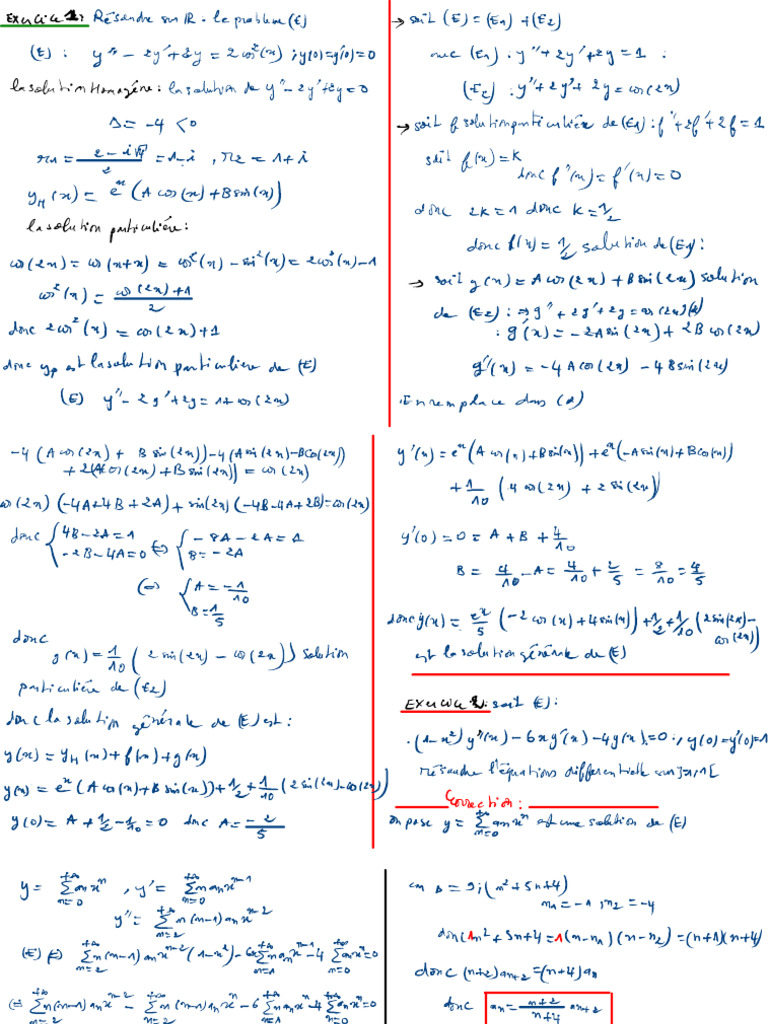 Exercice 1: Résoudre sur IR. le problème (E)
(E) : y'' - 2y' + 2y = 2cos²(x) ; y(0)=y'(0)=0
la solution Homogène: la solution de y''-2y'+2y=0
Δ = -4 < 0
r1 = (2-i√4)/2 = 1-i , r2 = 1+i
y_H(x) = e^x (A cos(x) + B sin(x))
la solution particulière:
cos(2x) = cos(x+x) = cos²(x) - sin²(x) = 2cos²(x)-1
cos²(x) = (cos(2x)+1)/2
donc 2cos²(x) = cos(2x)+1
donc yp est la solution particulière de (E)
(E) y''-2y'+2y = 1+cos(2x)
→ soit (E) = (E1) + (E2)
avec (E1) : y''+2y'+2y = 1 :
(E2) : y''+2y'+2y = cos(2x)
→ soit f solution particulière de (E1) : f''+2f'+2f = 1
soit f(x) = K
donc f''(x) = f'(x) = 0
donc 2K=1 donc K=1/2
donc f(x) = 1/2 solution de (E1):
→ soit g(x) = A cos(2x) + B sin(2x) solution
de (E2) : ⇒ g''+2g'+2g = cos(2x)
: g'(x) = -2A sin(2x) + 2B cos(2x)
g''(x) = -4A cos(2x) - 4B sin(2x)
. En remplace dans (2)
-4(A cos(2x) + B sin(2x)) - 4(A sin(2x) - B cos(2x))
+ 2(A cos(2x) + B sin(2x)) = cos(2x)
cos(2x)(-4A+4B+2A) + sin(2x)(-4B-4A+2B) = cos(2x)
donc { 4B-2A=1 ; -2B-4A=0 ⇔ { -8A-2A=1 ; B=-2A
⇔ { A = -1/10 ; B = 1/5
donc
g(x) = 1/10 (2 sin(2x) - cos(2x)) solution
particulière de (E2)
donc la solution générale de (E) est:
y(x) = y_H(x) + f(x) + g(x)
y(x) = e^x (A cos(x) + B sin(x)) + 1/2 + 1/10 (2 sin(2x) - cos(2x))
y(0) = A + 1/2 - 1/10 = 0 donc A = -2/5
y'(x) = e^x (A cos(x) + B sin(x)) + e^x (-A sin(x) + B cos(x))
+ 1/10 (4 cos(2x) + 2 sin(2x))
y'(0) = 0 = A + B + 4/10
B = 4/10 - A = 4/10 + 2/5 = 8/10 = 4/5
donc y(x) = e^x/5 (-2 cos(x) + 4 sin(x)) + 1/2 + 1/10 (2 sin(2x) - cos(2x))
est la solution générale de (E)
Exercice 2: soit (E):
. (1-x²) y''(x) - 6x y'(x) - 4y(x) = 0 ; y(0)=y'(0)=1
résoudre l'équations differentielle
Correction:
on pose y = Σ_{n=0}^{+∞} a_n x^n est une solution de (E)
y = Σ_{n=0}^{+∞} a_n x^n , y' = Σ_{n=0}^{+∞} n a_n x^{n-1}
y'' = Σ_{n=2}^{+∞} n(n-1) a_n x^{n-2}
(E) ⇔ Σ_{n=2}^{+∞} n(n-1) a_n x^{n-2} (1-x²) - 6x Σ_{n=1}^{+∞} a_n x^{n-1} - 4 Σ_{n=0}^{+∞} a_n x^n = 0
⇔ Σ_{n=2}^{+∞} n(n-1) a_n x^{n-2} - Σ_{n=2}^{+∞} n(n-1) a_n x^n - 6 Σ_{n=1}^{+∞} n a_n x^n - 4 Σ_{n=0}^{+∞} a_n x^n = 0
on Δ = 9 ; (n²+5n+4)
n1 = -1 ; n2 = -4
donc 1n²+5n+4 = 1(n-n1)(n-n2) = (n+1)(n+4)
donc (n+2) a_{n+2} = (n+4) a_n
donc a_n = (n+2)/(n+4) a_{n+2}